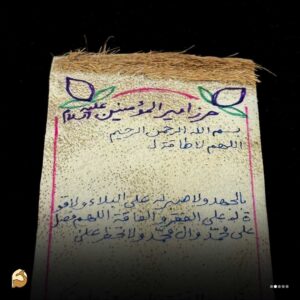 حرز امير المؤمنين عليه السلام
بسم الله الرحمن الرحيم
اللهم لا طاقة ل
بالجهد ولا صبر لي على البلاء ولا قو
ة لي على الفقر و الفاقة اللهم فصل
على محمد وال محمد ولا تحظر علي